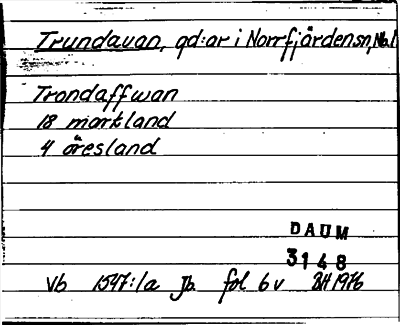 Trundavan, gd:ar i Norrfjärdensn, Nb.l
Trondaffwan
18 markland
4 öresland
DAUM
3148
Vb 1547:1a Jb fol 6v BH 1976